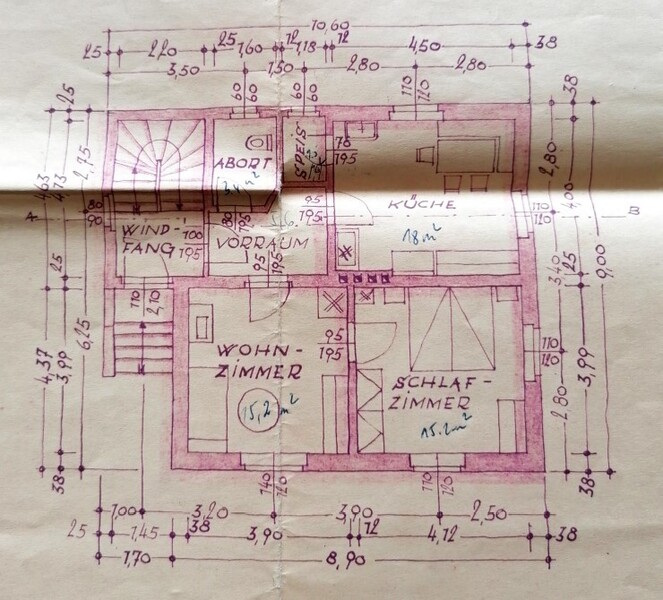 10,60
25 2,20 25 1,60 12 1,18 12 4,50 38
3,50 1,50 2,80 2,80
60 60 60 60 110 120
25 38
4,63 4,73 2,75
ABORT
SPEIS
78
195
2,80
4,00
9,00
A
80
90
80
195
95
195
KÜCHE
18 m²
110
120
B
WIND-
FANG
100
195
VORRAUM
3,40
25
25
110
2,10
95
195
6,25
4,37
3,99
WOHN-
ZIMMER
95
195
SCHLAF-
ZIMMER
110
120
3,99
2,80
15,2 m²
15.2m²
38
140
120
110
120
38
1,00 3,20 3,90 2,50
25 1,45 38 3,90 12 4,12 38
1,70 8,90